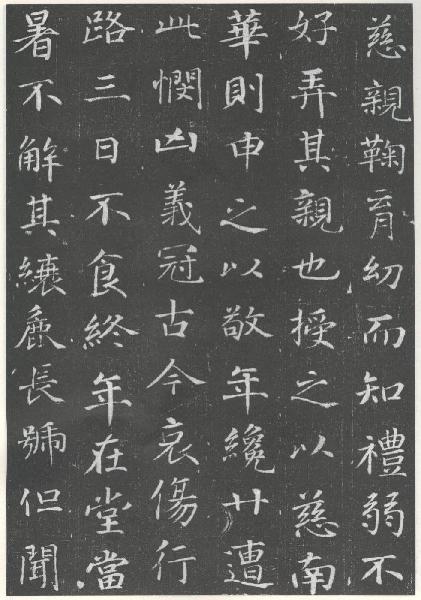 慈親鞠育幼而知禮弱不
好弄其親也授之以慈南
華則申之以敬年纔廿遭
此憫凶義冠古今哀傷行
路三日不食終年在堂當
暑不解其縗麁長號但聞